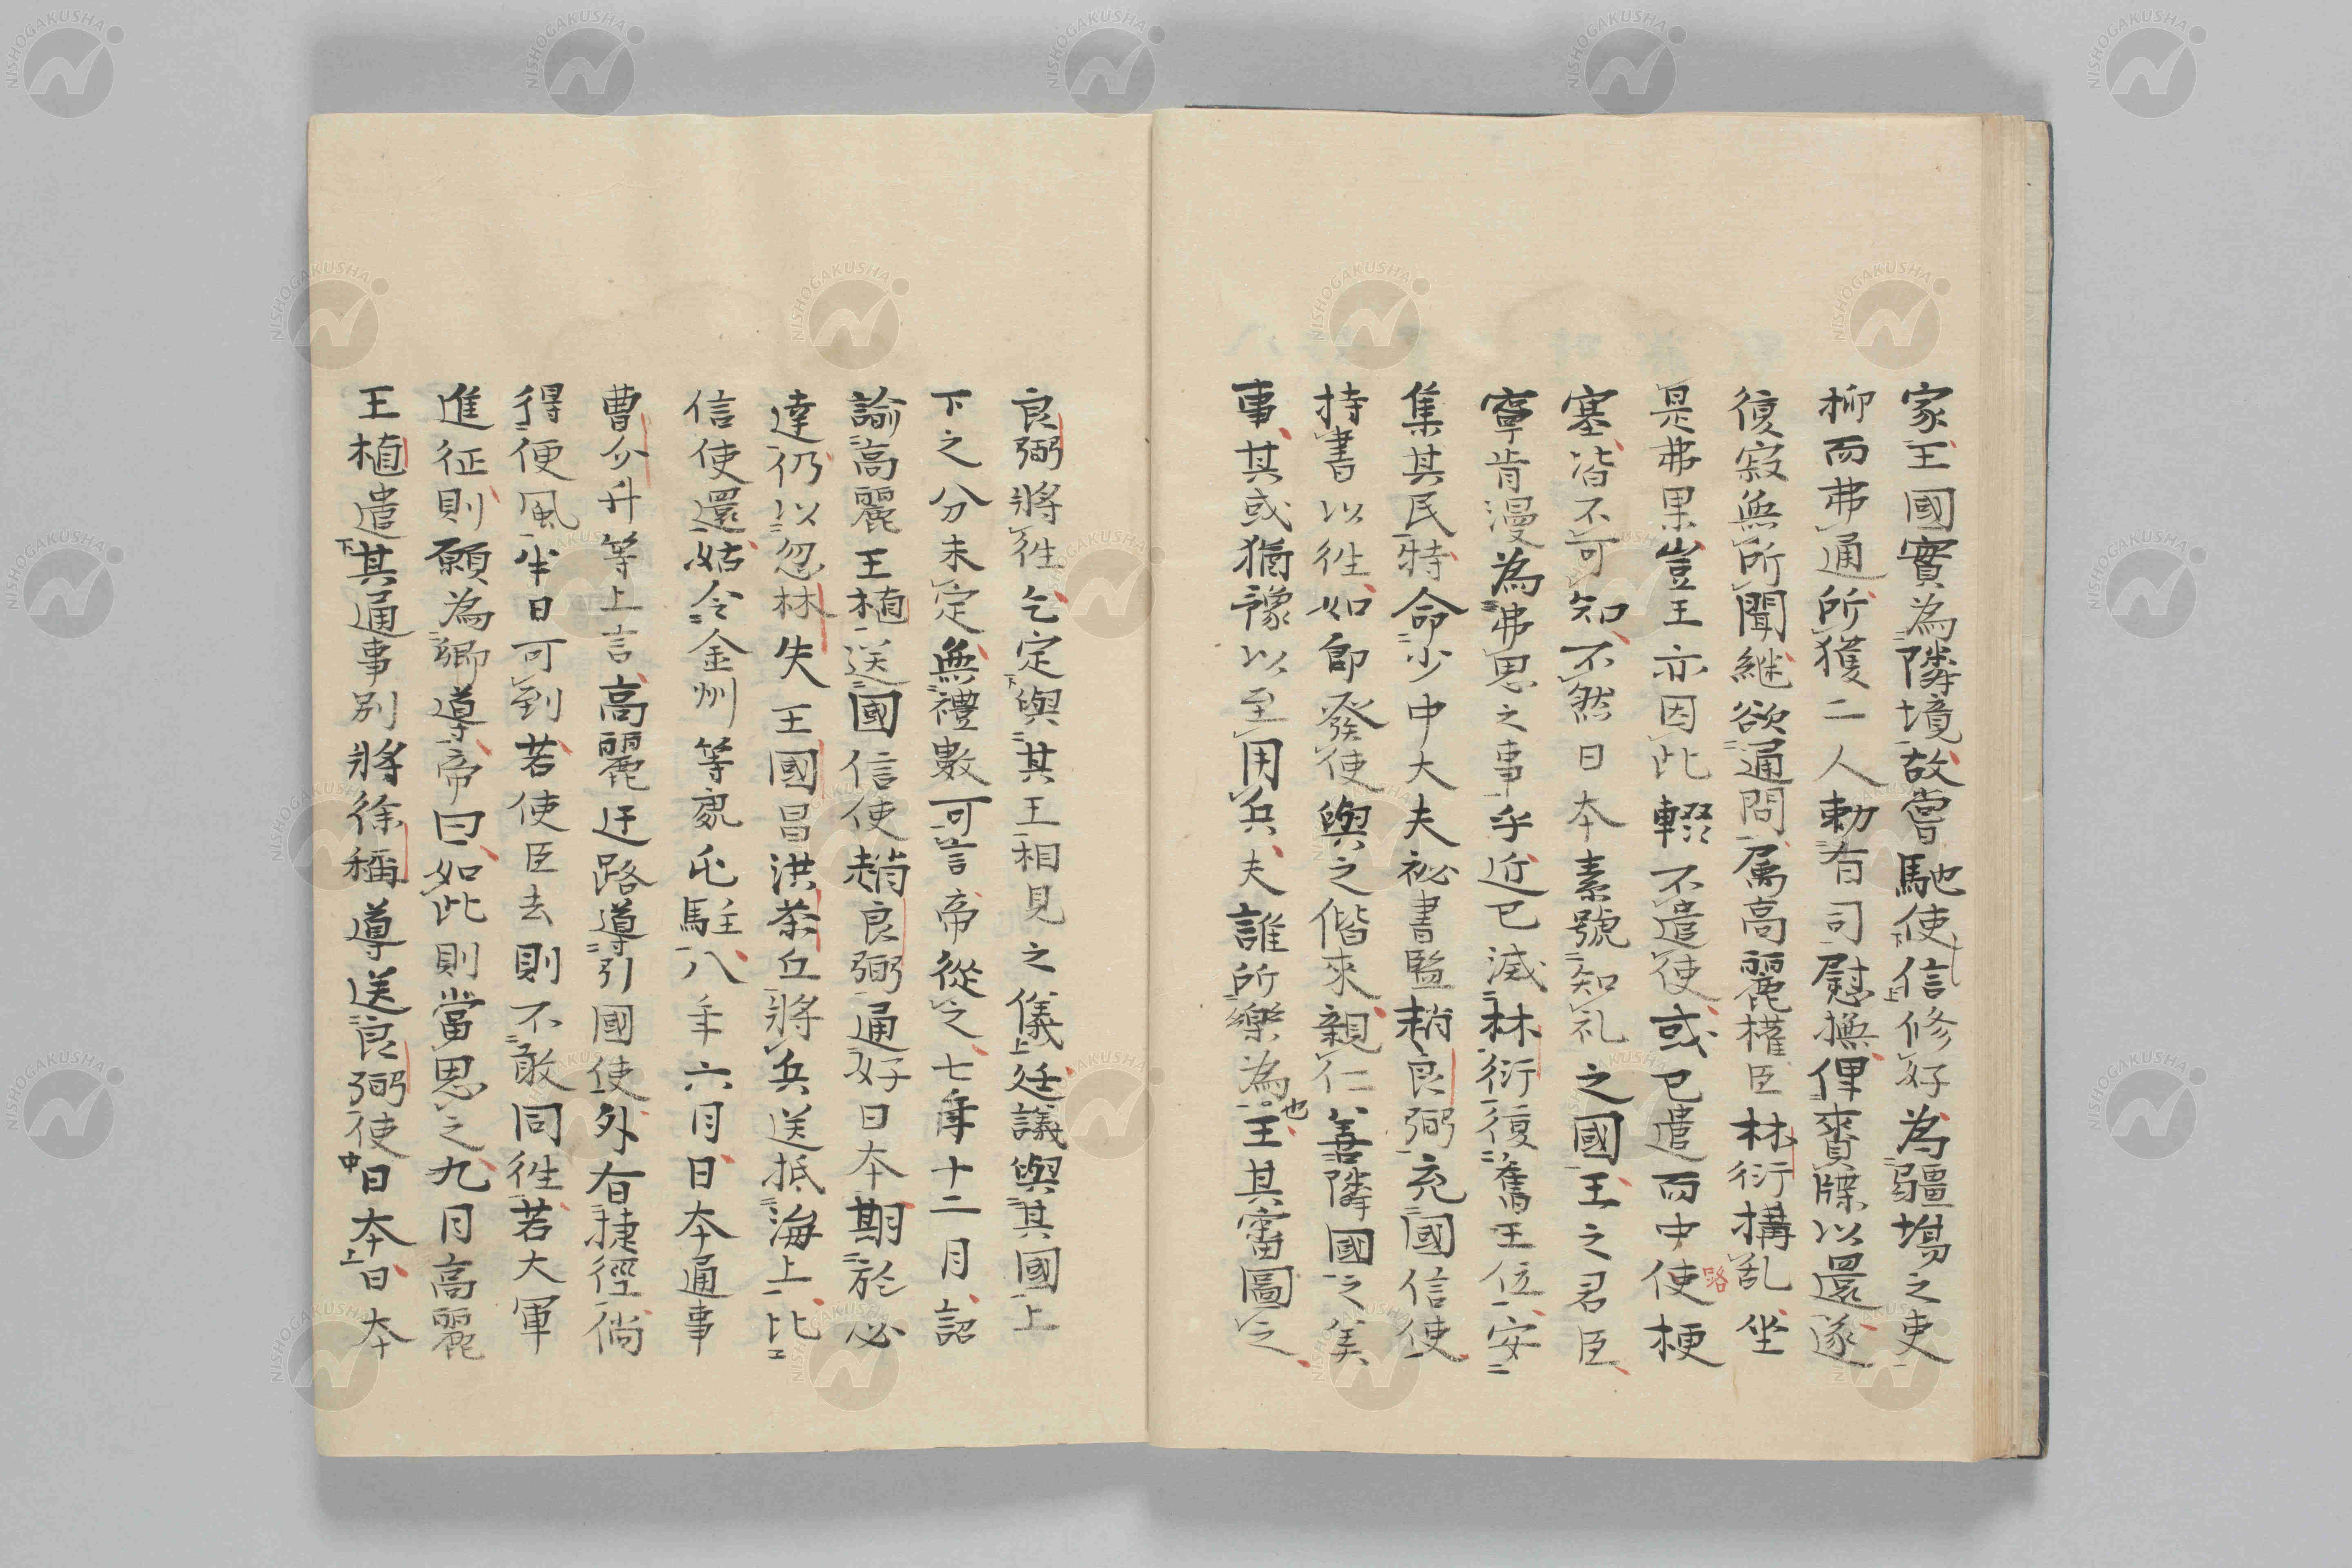 家王國實為隣境故嘗馳使信修好為疆場之吏
抑而弗通所獲二人勅有司慰撫俾賫牒以還遂
復寂無所聞継欲通問属高麗權臣林衍構乱坐
是弗果豈王亦因此輟不遣使或已遣而中使梗
路
塞皆不可知不然日本素號知礼之國王之君臣
寧肯漫為弗思之事乎近已滅林衍復舊王位安
集其民特命少中大夫祕書監趙良弼充國信使
持書以徃如即發使與之偕來親仁善隣國之美
事其或猶豫以至用兵夫誰所樂為王其審圖之
也
良弼將徃乞定與其王相見之儀廷議與其國上
下之分未定無禮數可言帝從之七年十二月詔
諭高麗王植送國信使趙良弼通好日本期於必
達仍以忽林失王國昌洪茶丘將兵送抵海上比
信使還姑令金州等處屯駐八年六月日本通事
曹介升等上言高麗迂路導引國使外有捷徑倘
得便風半日可到若使臣去則不敢同徃若大軍
進征則願為鄉導帝曰如此則當思之九月高麗
王植遣其通事別將徐稱導送良弼使日本日本
NISHOGAKUSHA